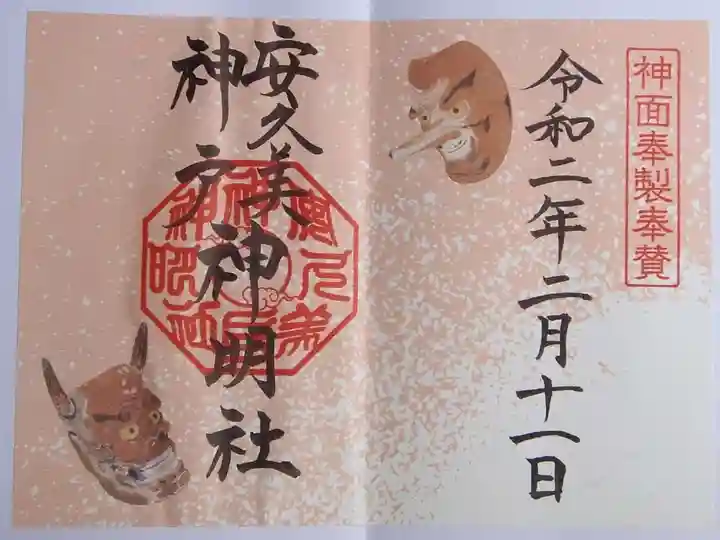 神面奉製奉賛
令和二年二月十一日
安久美
神戸
神明社